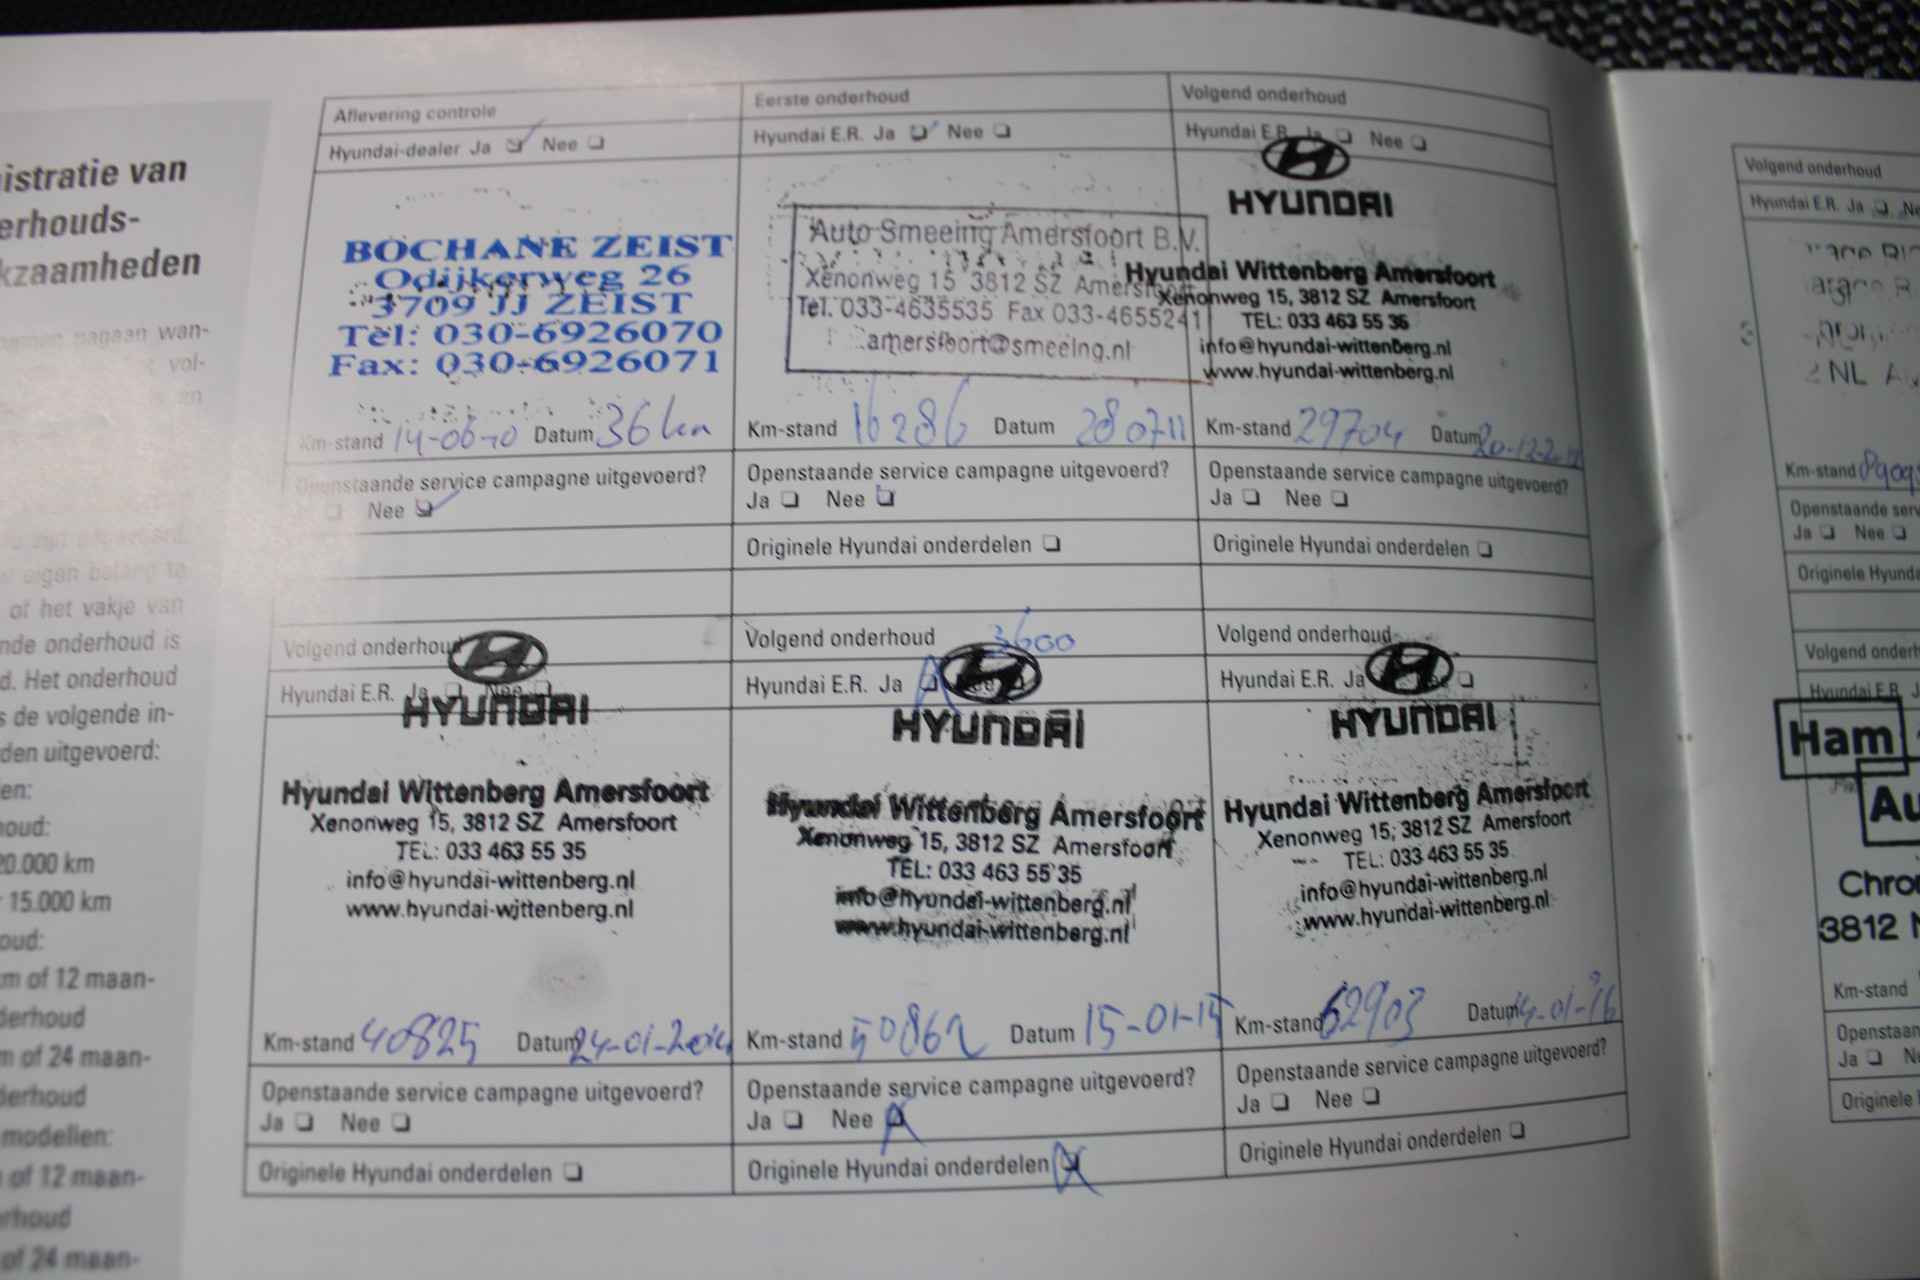 istratie van
erhouds-
kzaamheden
nagaan wan-
vol-
of het vakje van
nde onderhoud is
d. Het onderhoud
s de volgende in-
den uitgevoerd:
en:
houd:
20.000 km
15.000 km
oud:
m of 12 maan-
derhoud
m of 24 maan-
derhoud
modellen:
of 12 maan-
rhoud
of 24 maan-
Aflevering controle
Hyundai-dealer Ja Nee
BOCHANE ZEIST
Odijkerweg 26
3709 JJ ZEIST
Tel: 030-6926070
Fax: 030-6926071
Km-stand 14-06-10 Datum 36 km
Openstaande service campagne uitgevoerd?
Nee
Eerste onderhoud
Hyundai E.R. Ja Nee
Auto Smeeing Amersfoort B.V.
Xenonweg 15 3812 SZ Amersfoort
Tel. 033-4635535 Fax 033-4655241
amersfoort@smeeing.nl
Km-stand 16286 Datum 280711
Openstaande service campagne uitgevoerd?
Ja Nee
Originele Hyundai onderdelen
Volgend onderhoud
Hyundai E.R. Ja Nee
HYUNDAI
Hyundai Wittenberg Amersfoort
Xenonweg 15, 3812 SZ Amersfoort
TEL: 033 463 55 35
info@hyundai-wittenberg.nl
www.hyundai-wittenberg.nl
Km-stand 29704 Datum
Openstaande service campagne uitgevoerd?
Ja Nee
Originele Hyundai onderdelen
Volgend onderhoud
Hyundai E.R. Ja Nee
HYUNDAI
Hyundai Wittenberg Amersfoort
Xenonweg 15, 3812 SZ Amersfoort
TEL: 033 463 55 35
info@hyundai-wittenberg.nl
www.hyundai-wittenberg.nl
Km-stand 40825 Datum 24-01-2014
Openstaande service campagne uitgevoerd?
Ja Nee
Originele Hyundai onderdelen
Volgend onderhoud 3600
Hyundai E.R. Ja Nee
HYUNDAI
Hyundai Wittenberg Amersfoort
Xenonweg 15, 3812 SZ Amersfoort
TEL: 033 463 55 35
info@hyundai-wittenberg.nl
www.hyundai-wittenberg.nl
Km-stand 50862 Datum 15-01-15
Openstaande service campagne uitgevoerd?
Ja Nee
Originele Hyundai onderdelen
Volgend onderhoud
Hyundai E.R. Ja
HYUNDAI
Hyundai Wittenberg Amersfoort
Xenonweg 15, 3812 SZ Amersfoort
TEL: 033 463 55 35
info@hyundai-wittenberg.nl
www.hyundai-wittenberg.nl
Km-stand 62903 Datum 14-01-16
Openstaande service campagne uitgevoerd?
Ja Nee
Originele Hyundai onderdelen
Volgend onderhoud
Hyundai E.R. Ja Ne
NL
Km-stand
Openstaande serv
Ja Nee
Originele Hyunda
Volgend onderh
Hyundai E.R. J
Ham
Au
Chro
3812 N
Km-stand
Openstaan
Ja N
Originele